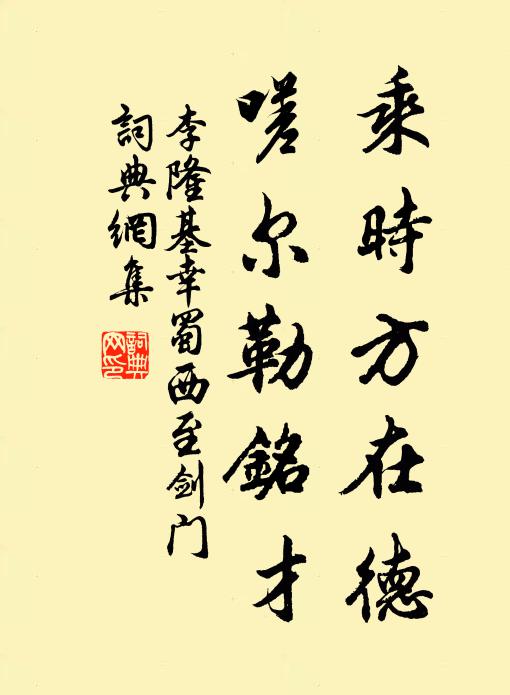 乘時方在德
嗟尔勒銘才
李隆基幸蜀西至剑门
詞典網集
詞典网印